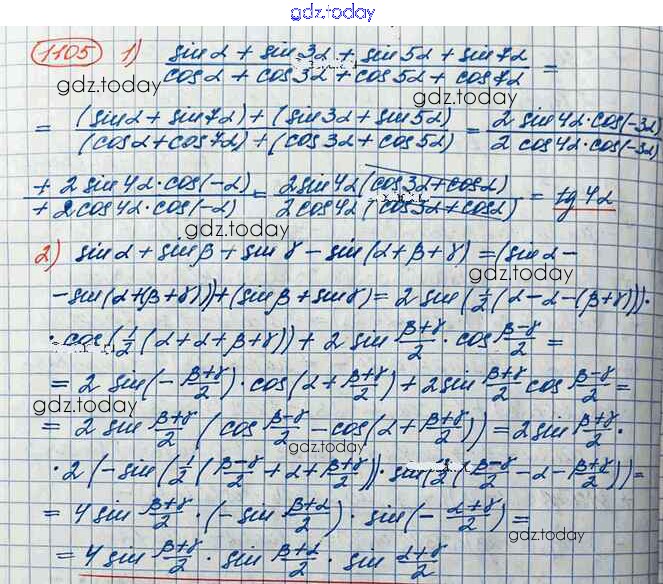 gdz.today
1105 1) (sin α + sin 3α + sin 5α + sin 7α)/(cos α + cos 3α + cos 5α + cos 7α) =
gdz.today
gdz.today
= ((sin α + sin 7α) + (sin 3α + sin 5α))/((cos α + cos 7α) + (cos 3α + cos 5α)) = (2 sin 4α · cos(-3α)/(2 cos 4α · cos(-3α)
gdz.today
(+ 2 sin 4α · cos(-α))/(+ 2 cos 4α · cos(-α)) = (2 sin 4α (cos 3α + cos α))/(2 cos 4α (cos 3α + cos α)) = tg 4α
gdz.today
2) sin α + sin β + sin γ - sin(α + β + γ) = (sin α -
gdz.today
- sin(α + (β + γ))) + (sin β + sin γ) = 2 sin(1/2 (α - α - (β + γ))) ·
· cos(1/2 (α + α + β + γ)) + 2 sin (β+γ)/2 · cos (β-γ)/2 =
= 2 sin(- (β+γ)/2) · cos(α + (β+γ)/2) + 2 sin (β+γ)/2 cos (β-γ)/2 =
gdz.today
= 2 sin (β+γ)/2 (cos (β-γ)/2 - cos(α + (β+γ)/2)) = 2 sin (β+γ)/2 ·
gdz.today
· 2 (- sin(1/2 ((β-γ)/2 + α + (β+γ)/2)) · sin(1/2 ((β-γ)/2 - α - (β+γ)/2)) =
= 4 sin (β+γ)/2 · (- sin (β+α)/2) · sin(- (α+γ)/2) =
gdz.today
= 4 sin (β+γ)/2 · sin (β+α)/2 · sin (α+γ)/2
gdz.today